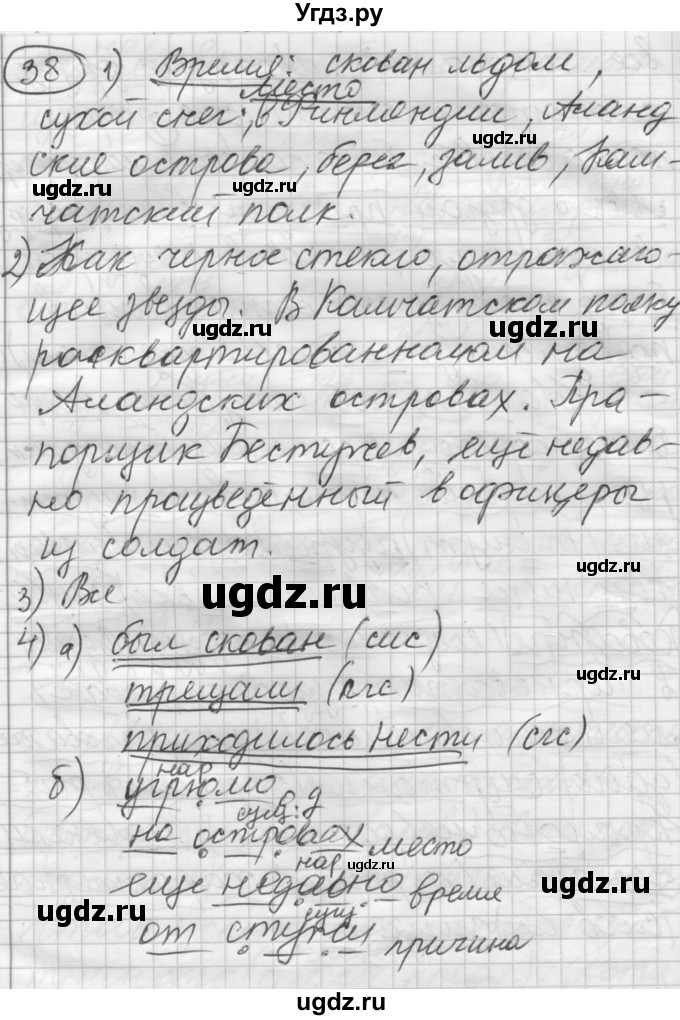 Угдз.ру
38 1) Время: скован льдом,
место
сухой снег; в Финляндии, Аланд
ские острова, берег, залив, Кам-
ugdz.ru ugdz.ru
чатский полк.
ugdz.ru
2) Как черное стекло, отражаю-
щее звезды. В Камчатском полку
ugdz.ru ugdz.ru
расквартированном на
Аландских островах. Пра-
порщик Бестужев, ещё недав-
но произведённый в офицеры
из солдат.
3) Все
ugdz.ru
4) а) был скован (сис)
ugdz.ru
трещали (пгс)
приходилось нести (сгс)
нар
б) угрюмо о. д
сущ.
на островах место
нар ugdz.ru
еще недавно время
ugdz.ru ugdz.ru
сущ
от стужи причина
ugdz.ru